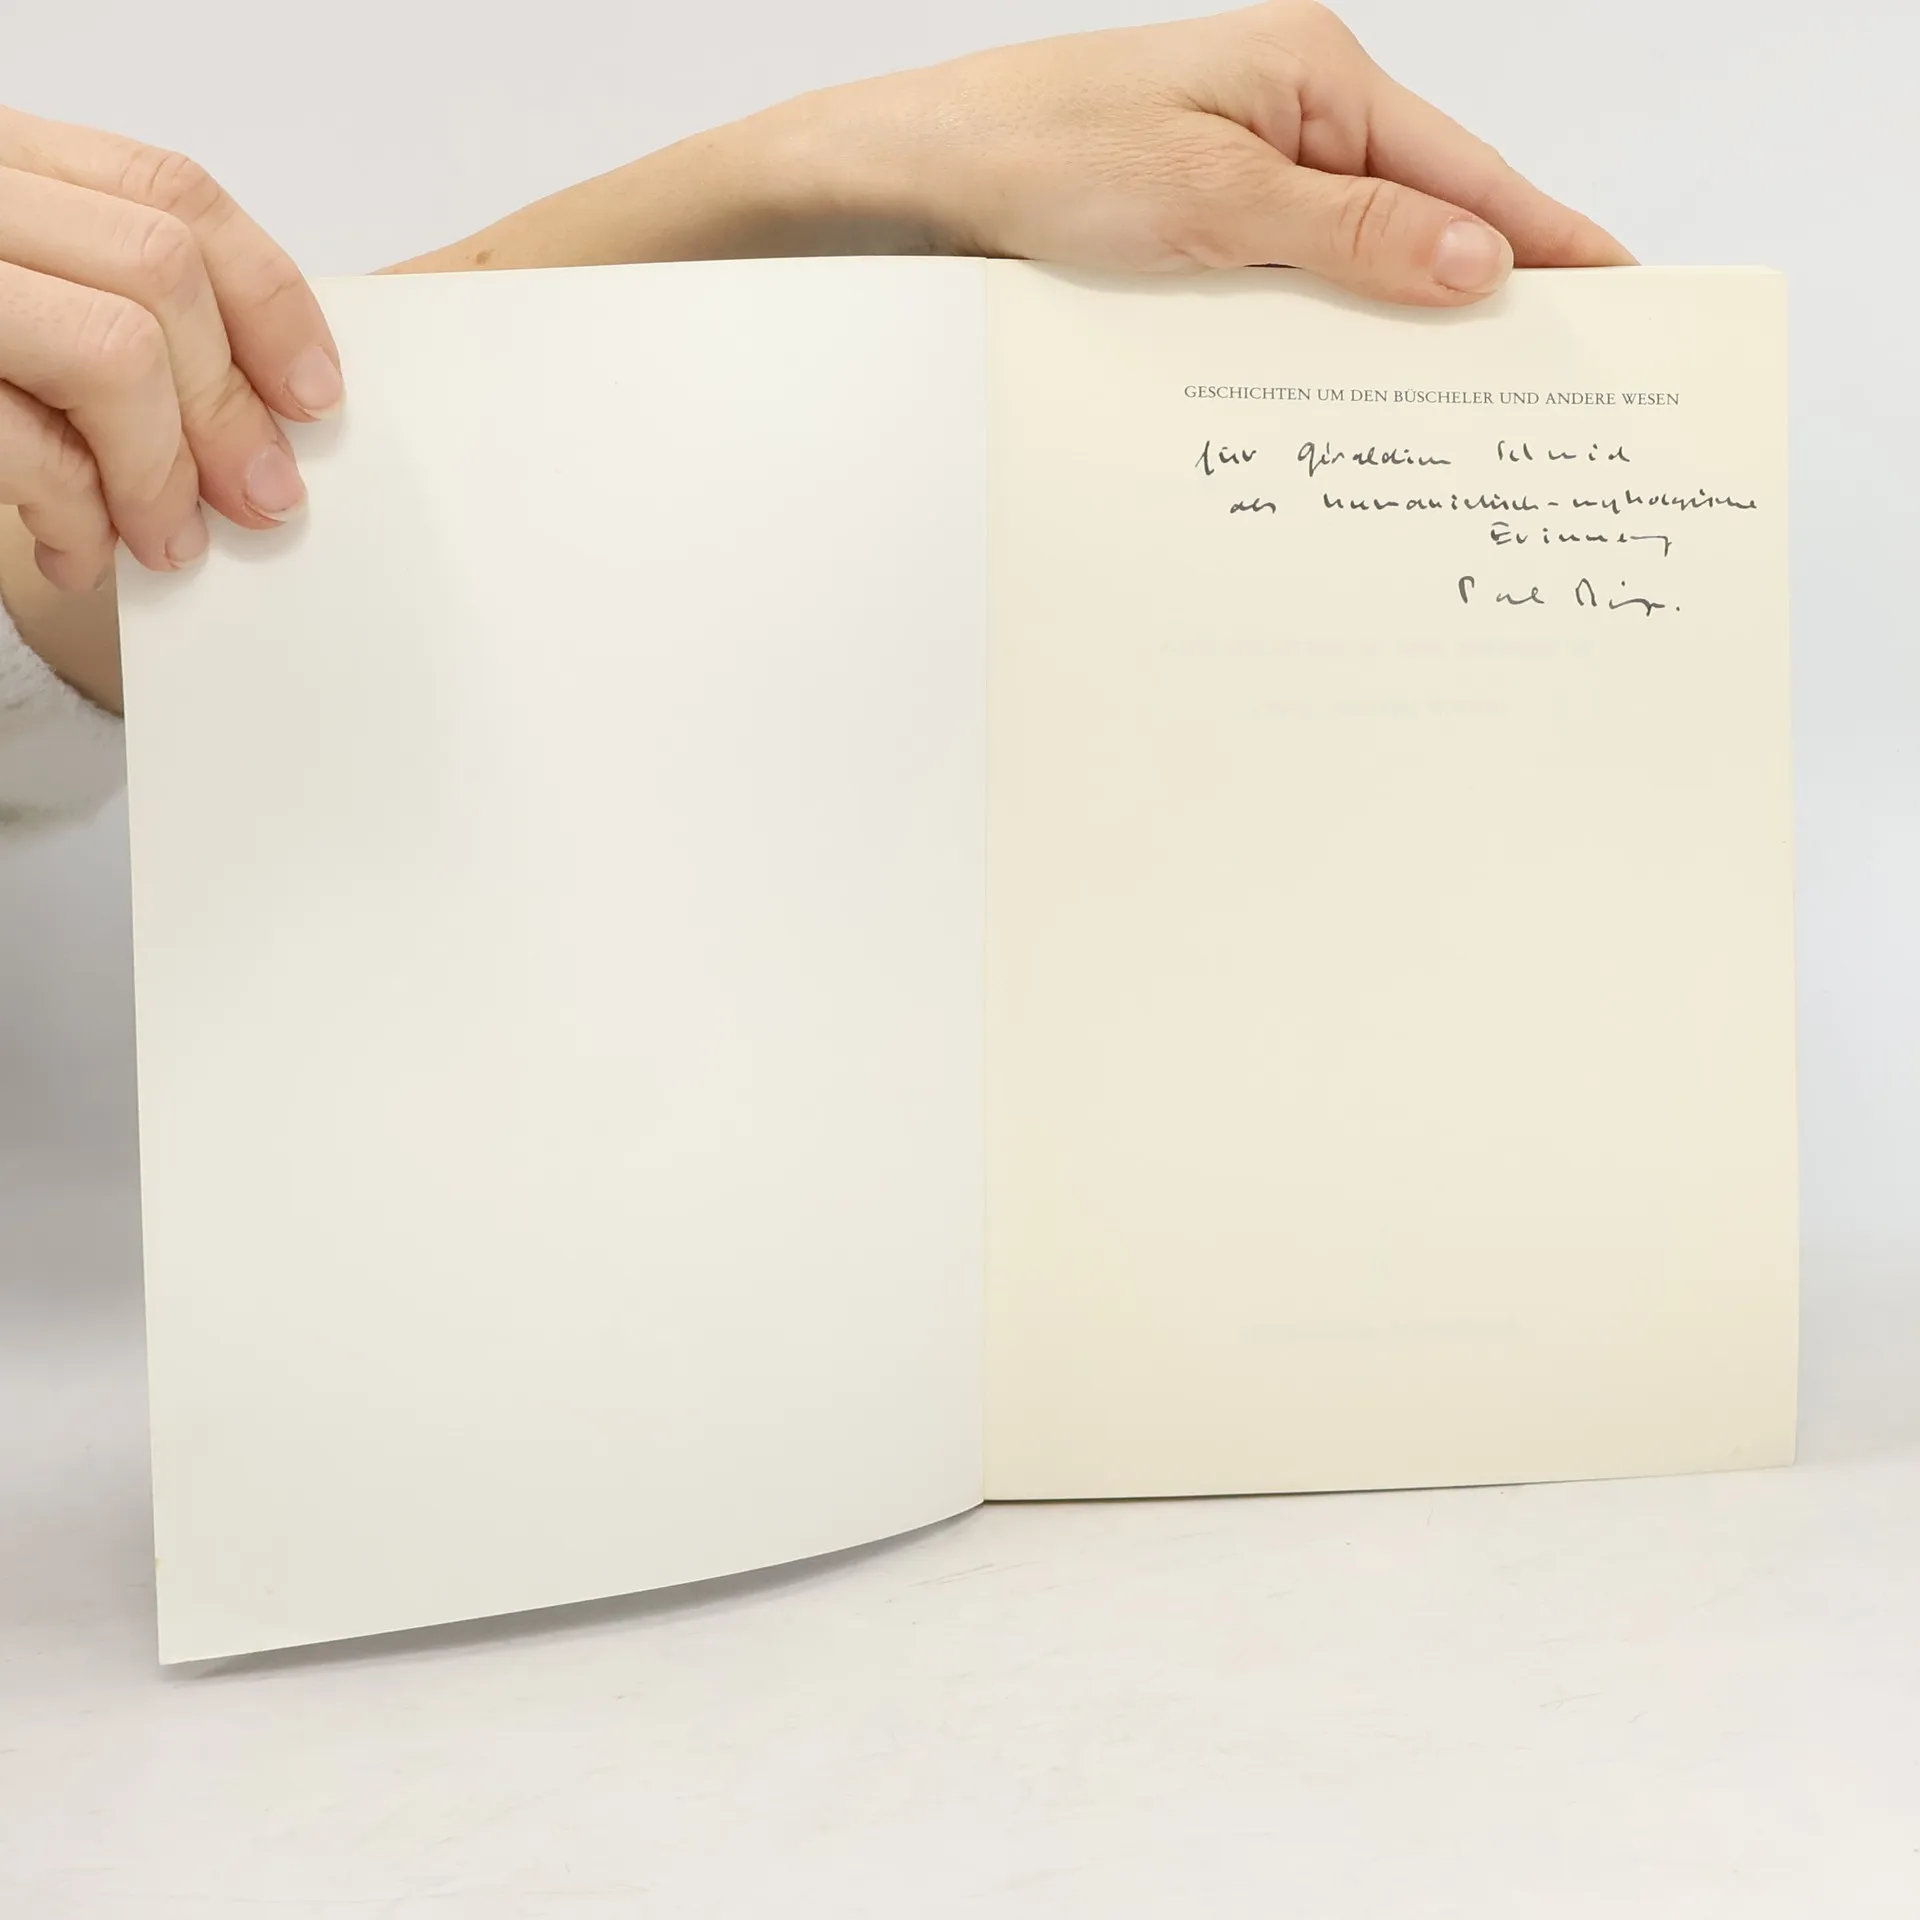 GESCHICHTEN UM DEN BÜSCHELER UND ANDERE WESEN
für Géraldine Schmid
als humanistisch-mythologische
Erinnerung
Paul